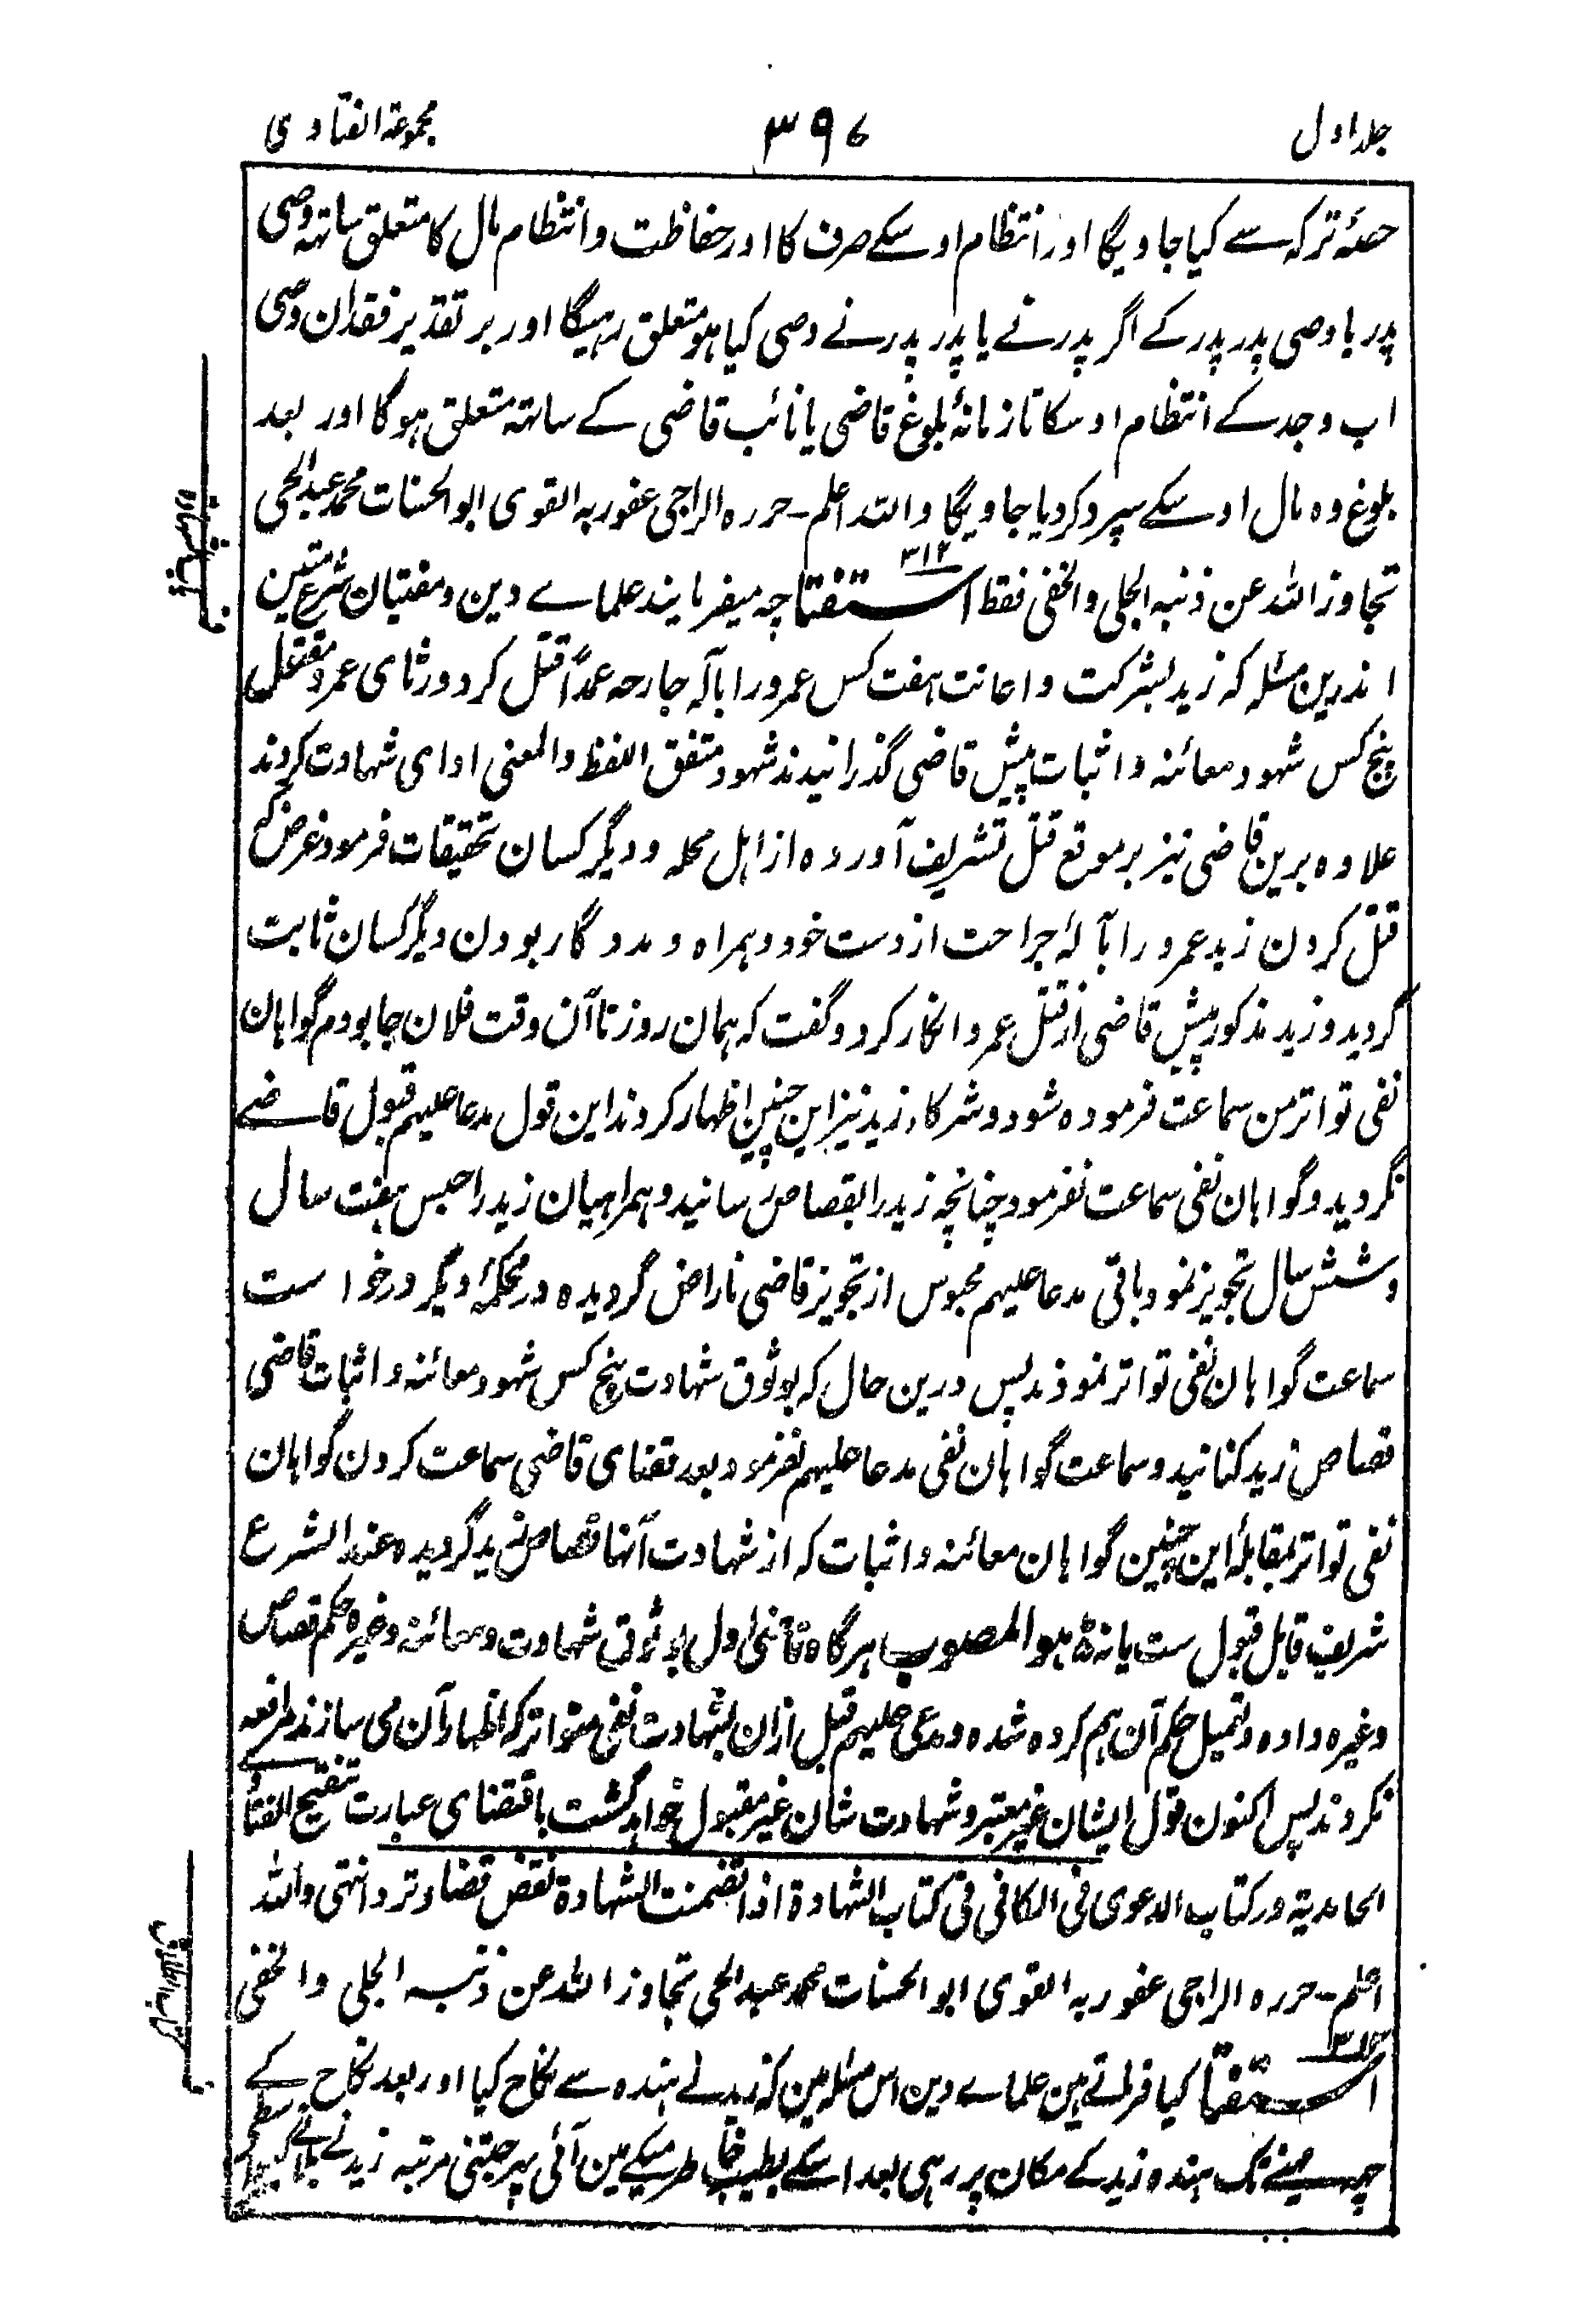 جلد اول
۳۹۷
مجموعۃ الفتاوی
حصۂ ترکہ سے کیا جاویگا اور انتظام اوسکے صرف کا اور حفاظت و انتظام مال کا متعلق ساتھ وصی
پدر یا وصی پدر پدر کے اگر پدر نے یا پدر پدر نے وصی کیا ہو متعلق رہیگا اور بر تقدیر فقدان وصی
اب وجد کے انتظام اوسکا تا زمانۂ بلوغ قاضی یا نائب قاضی کے ساتھ متعلق ہوگا اور بعد
بلوغ وہ مال اوسکے سپرد کر دیا جاویگا واللہ اعلم۔ حررہ الراجی عفو ربہ القوی ابو الحسنات محمد عبد الحی
تجاوز اللہ عن ذنبہ الجلی والخفی فقط استفتا ۳۱۲ چہ میفرمایند علماے دین و مفتیان شرع متین
اندرین مسئلہ کہ زید بشرکت و اعانت ہفت کس عمرو را بآلہ جارحہ عمداً قتل کرد ورثای عمرو مقتول
پنج کس شہود معائنہ و اثبات پیش قاضی گذرانیدند شہود متفق اللفظ والمعنی ادای شہادت کردند
علاوہ برین قاضی نیز بر موقع قتل تشریف آوردہ از اہل محلہ و دیگر کسان تحقیقات فرمود غرض کہ
قتل کردن زید عمرو را بآلۂ جراحت از دست خود و ہمراہ و مددگار بودن دیگر کسان ثابت
گردید و زید مذکور پیش قاضی از قتل عمرو انکار کرد و گفت کہ ہمان روز تا آن وقت فلان جا بودم گواہان
نفی تواتر من سماعت فرمودہ شود و شرکاء زید نیز این چنین اظہار کردند این قول مدعا علیہم قبول قاضے
نگردید و گواہان نفی سماعت نفرمود چنانچہ زید را بقصاص رسانید و ہمراہیان زید را حبس ہفت سال
و شش سال تجویز نمود باقی مدعا علیہم محبوس از تجویز قاضی ناراض گردیدہ در محکمۂ دیگر درخواست
سماعت گواہان نفی تواتر نمودند پس درین حال کہ بوثوق شہادت پنج کس شہود معائنہ و اثبات قاضی
قصاص زید کنانید و سماعت گواہان نفی مدعا علیہم نفرمود بعد قضای قاضی سماعت کردن گواہان
نفی تواتر بمقابلۂ این چنین گواہان معائنہ و اثبات کہ از شہادت آنہا قصاص زید گردیدہ عند الشرع
شریف قابل قبول ست یا نہ ھو المصوب ہرگاہ قاضئ اول بوثوق شہادت و معائنہ وغیرہ حکم قصاص
وغیرہ دادہ و تعمیل حکم آن ہم کردہ شدہ و مدعی علیہم قبل ازان بشہادت نفی متواتر کہ اظہار آن می سازند مرافعہ
نکردند پس اکنون قول ایشان غیر معتبر و شہادت شان غیر مقبول خواہد گشت باقتضای عبارت تنقیح الفتاوے
الحامدیۃ در کتاب الدعوی فی الکافی فی کتاب الشہادۃ اذا تضمنت الشہادۃ نقض قضاء ترد انتہی واللہ
اعلم۔ حررہ الراجی عفو ربہ القوی ابو الحسنات محمد عبد الحی تجاوز اللہ عن ذنبہ الجلی والخفی
استفتا ۳۱۳ کیا فرماتے ہین علماے دین اس مسئلہ مین کہ زید نے ہندہ سے نکاح کیا اور بعد نکاح کے
چھ مہینے تک ہندہ زید کے مکان پر رہی بعد اسکے بطیب خاطر میکے مین آئی پھر جتنی مرتبہ زید نے بلانے کے